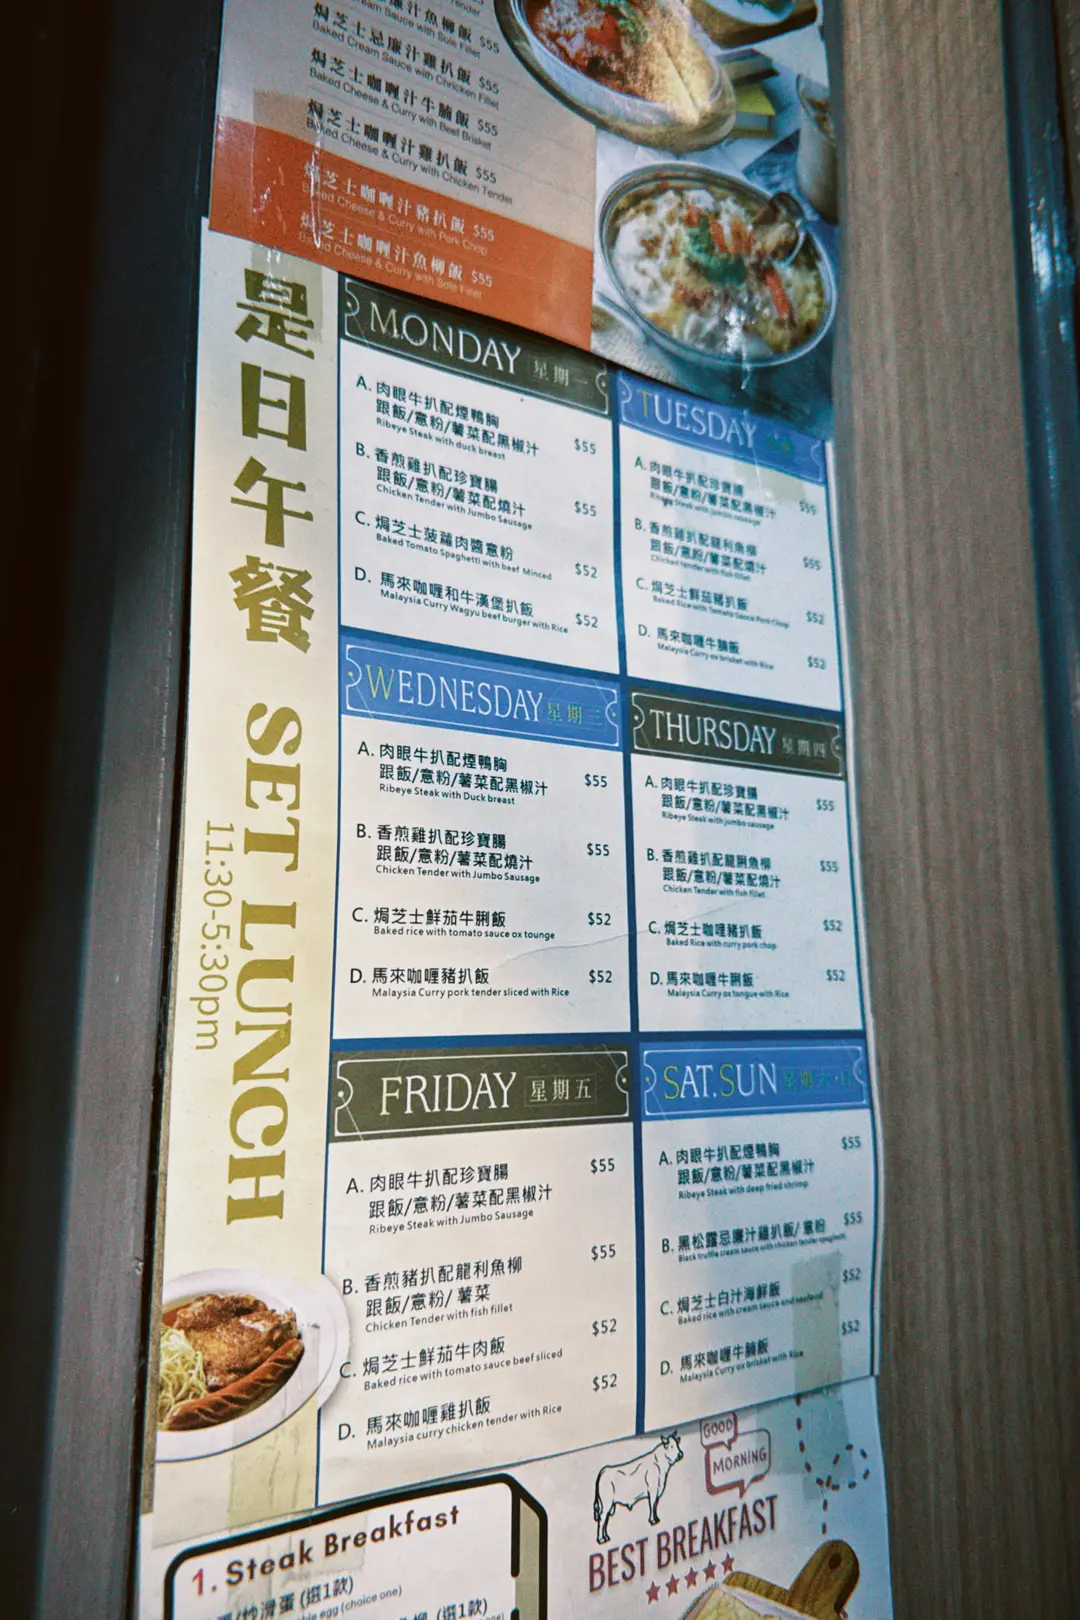 Cream Sauce with Sole Fillet
汁魚柳飯 $55
焗芝士忌廉汁雞扒飯 $55
Baked Cream Sauce with Chricken Fillet
焗芝士咖喱汁牛腩飯 $55
Baked Cheese & Curry with Beef Brisket
焗芝士咖喱汁雞扒飯 $55
Baked Cheese & Curry with Chicken Tender
焗芝士咖喱汁豬扒飯 $55
Baked Cheese & Curry with Pork Chop
焗芝士咖喱汁魚柳飯 $55
Baked Cheese & Curry with Sole Fillet
是日午餐 SET LUNCH
11:30-5:30pm
MONDAY 星期一
A. 肉眼牛扒配煙鴨胸
跟飯/意粉/薯菜配黑椒汁 $55
Ribeye Steak with duck breast
B. 香煎雞扒配珍寶腸
跟飯/意粉/薯菜配燒汁 $55
Chicken Tender with Jumbo Sausage
C. 焗芝士菠蘿肉醬意粉 $52
Baked Tomato Spaghetti with beef Minced
D. 馬來咖喱和牛漢堡扒飯 $52
Malaysia Curry Wagyu beef burger with Rice
TUESDAY
A. 肉眼牛扒配珍寶腸
跟飯/意粉/薯菜配黑椒汁 $55
Ribeye Steak with jumbo sausage
B. 香煎雞扒配龍利魚柳
跟飯/意粉/薯菜配燒汁 $55
Chicken tender with fish fillet
C. 焗芝士鮮茄豬扒飯 $52
Baked Rice with Tomato Sauce Pork Chop
D. 馬來咖喱牛腩飯 $52
Malaysia Curry ox brisket with Rice
WEDNESDAY 星期三
A. 肉眼牛扒配煙鴨胸
跟飯/意粉/薯菜配黑椒汁 $55
Ribeye Steak with Duck breast
B. 香煎雞扒配珍寶腸
跟飯/意粉/薯菜配燒汁 $55
Chicken Tender with Jumbo Sausage
C. 焗芝士鮮茄牛脷飯 $52
Baked rice with tomato sauce ox tounge
D. 馬來咖喱豬扒飯 $52
Malaysia Curry pork tender sliced with Rice
THURSDAY 星期四
A. 肉眼牛扒配珍寶腸
跟飯/意粉/薯菜配黑椒汁 $55
Ribeye Steak with jumbo sausage
B. 香煎雞扒配龍脷魚柳
跟飯/意粉/薯菜配燒汁 $55
Chicken Tender with fish fillet
C. 焗芝士咖喱豬扒飯 $52
Baked Rice with curry pork chop
D. 馬來咖喱牛脷飯 $52
Malaysia Curry ox tongue with Rice
FRIDAY 星期五
A. 肉眼牛扒配珍寶腸 $55
跟飯/意粉/薯菜配黑椒汁
Ribeye Steak with Jumbo Sausage
B. 香煎豬扒配龍利魚柳 $55
跟飯/意粉/薯菜
Chicken Tender with fish fillet
C. 焗芝士鮮茄牛肉飯 $52
Baked rice with tomato sauce beef sliced
D. 馬來咖喱雞扒飯 $52
Malaysia curry chicken tender with Rice
SAT.SUN 星期六·日
A. 肉眼牛扒配煙鴨胸 $55
跟飯/意粉/薯菜配黑椒汁
Ribeye Steak with deep fried shrimp
B. 黑松露忌廉汁雞扒飯/意粉 $55
Black truffle cream sauce with chicken tender spaghetti
C. 焗芝士白汁海鮮飯 $52
Baked rice with cream sauce and seafood
D. 馬來咖喱牛腩飯 $52
Malaysia Curry ox brisket with Rice
GOOD MORNING
BEST BREAKFAST
1. Steak Breakfast
/炒滑蛋 (選1款)
egg (choice one)
柳 (選1款)